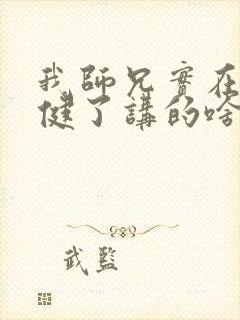 我師兄實在
健了講的啥
武監